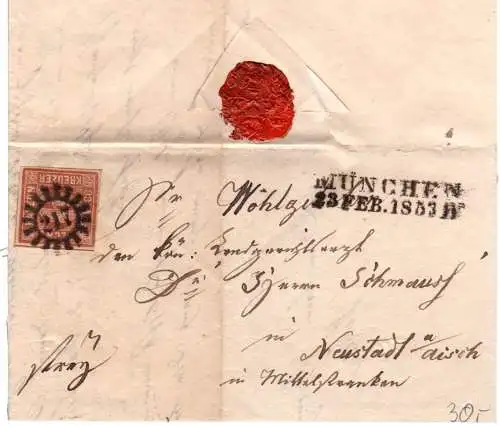 MÜNCHEN
23 FEB. 1853 IV
KREUZER
217
Sr Wohlgeb
den Kön: Landgerichtsarzt
Dr Herrn Schmauß
in
Neustadt a/aisch
in Mittelfranken
frey
30,-